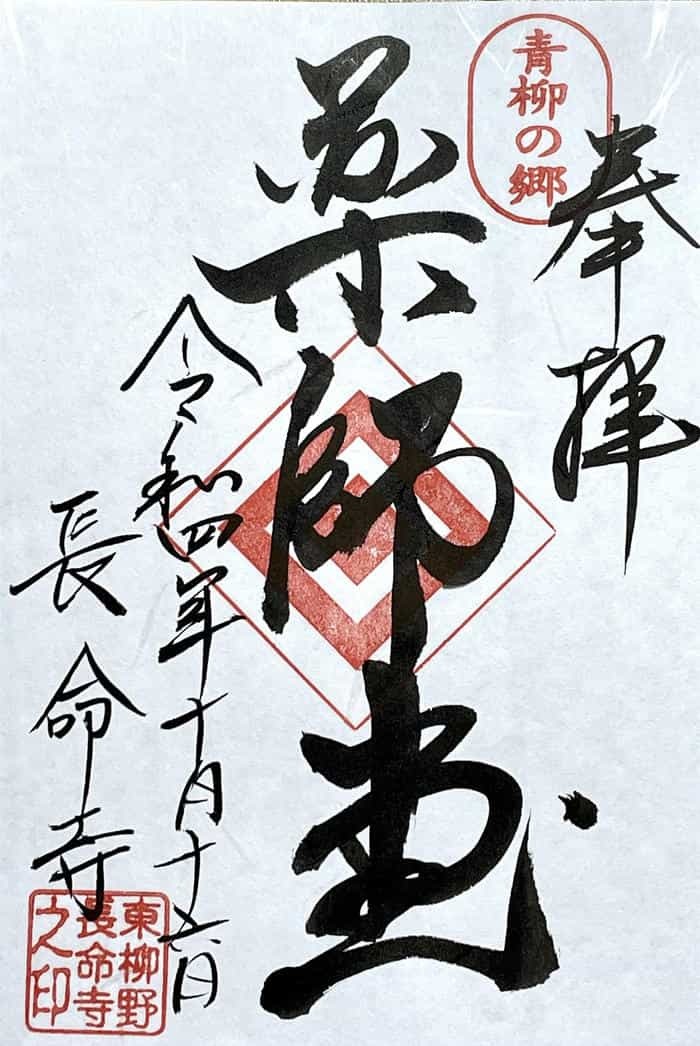 奉拝
青柳の郷
薬師堂
令和四年十月十六日
長命寺
東柳野
長命寺
之印